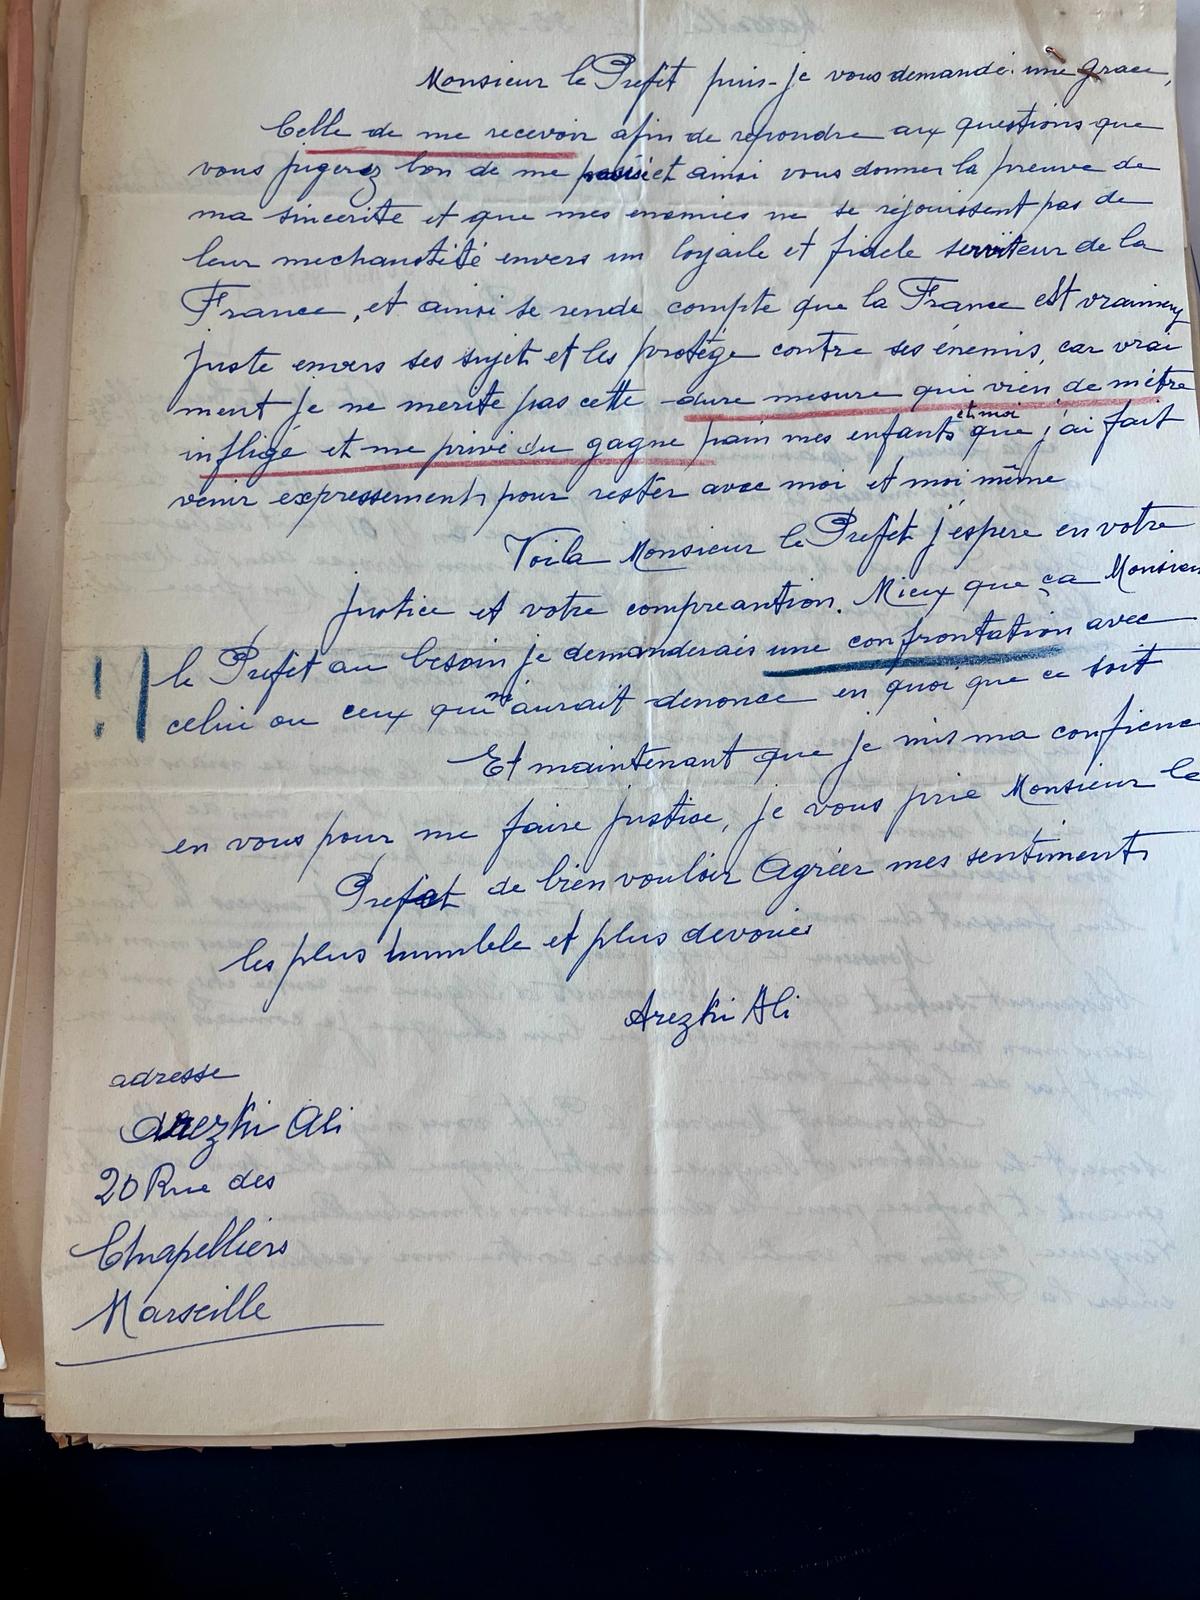 Monsieur le Prefet puis-je vous demandé une grace,
Celle de me recevoir afin de repondre aux questions que
vous jugerez bon de me et ainsi vous donner la preuve de
ma sincerite et que mes enemies ne se rejouissent pas de
leur mechanstité envers un loyaile et fidele serviteur de la
France, et ainsi se rende compte que la France est vraiment
juste envers ses sujet et les protége contre ses énemis, car vrai
ment je ne merite pas cette dure mesure qui vien de métre
infligé et me prive du gagne pain mes enfants et moi que j'ai fait
venir expressement pour restér avec moi et moi même
Voila Monsieur le Prefet j'espere en votre
justice et votre compreantion. Mieux que ça Monsieur
le Prefet au besoin je demanderais une confrontation avec
celui ou ceux qui m'aurait denonce en quoi que ce soit
Et maintenant que je mis ma confience
en vous pour me faire justice, je vous prie Monsieur le
Prefet de bien vouloir Agréer mes sentiments
les plus humble et plus devoués
Arezki Ali
adresse
Arezki Ali
20 Rue des
Chapelliers
Marseille